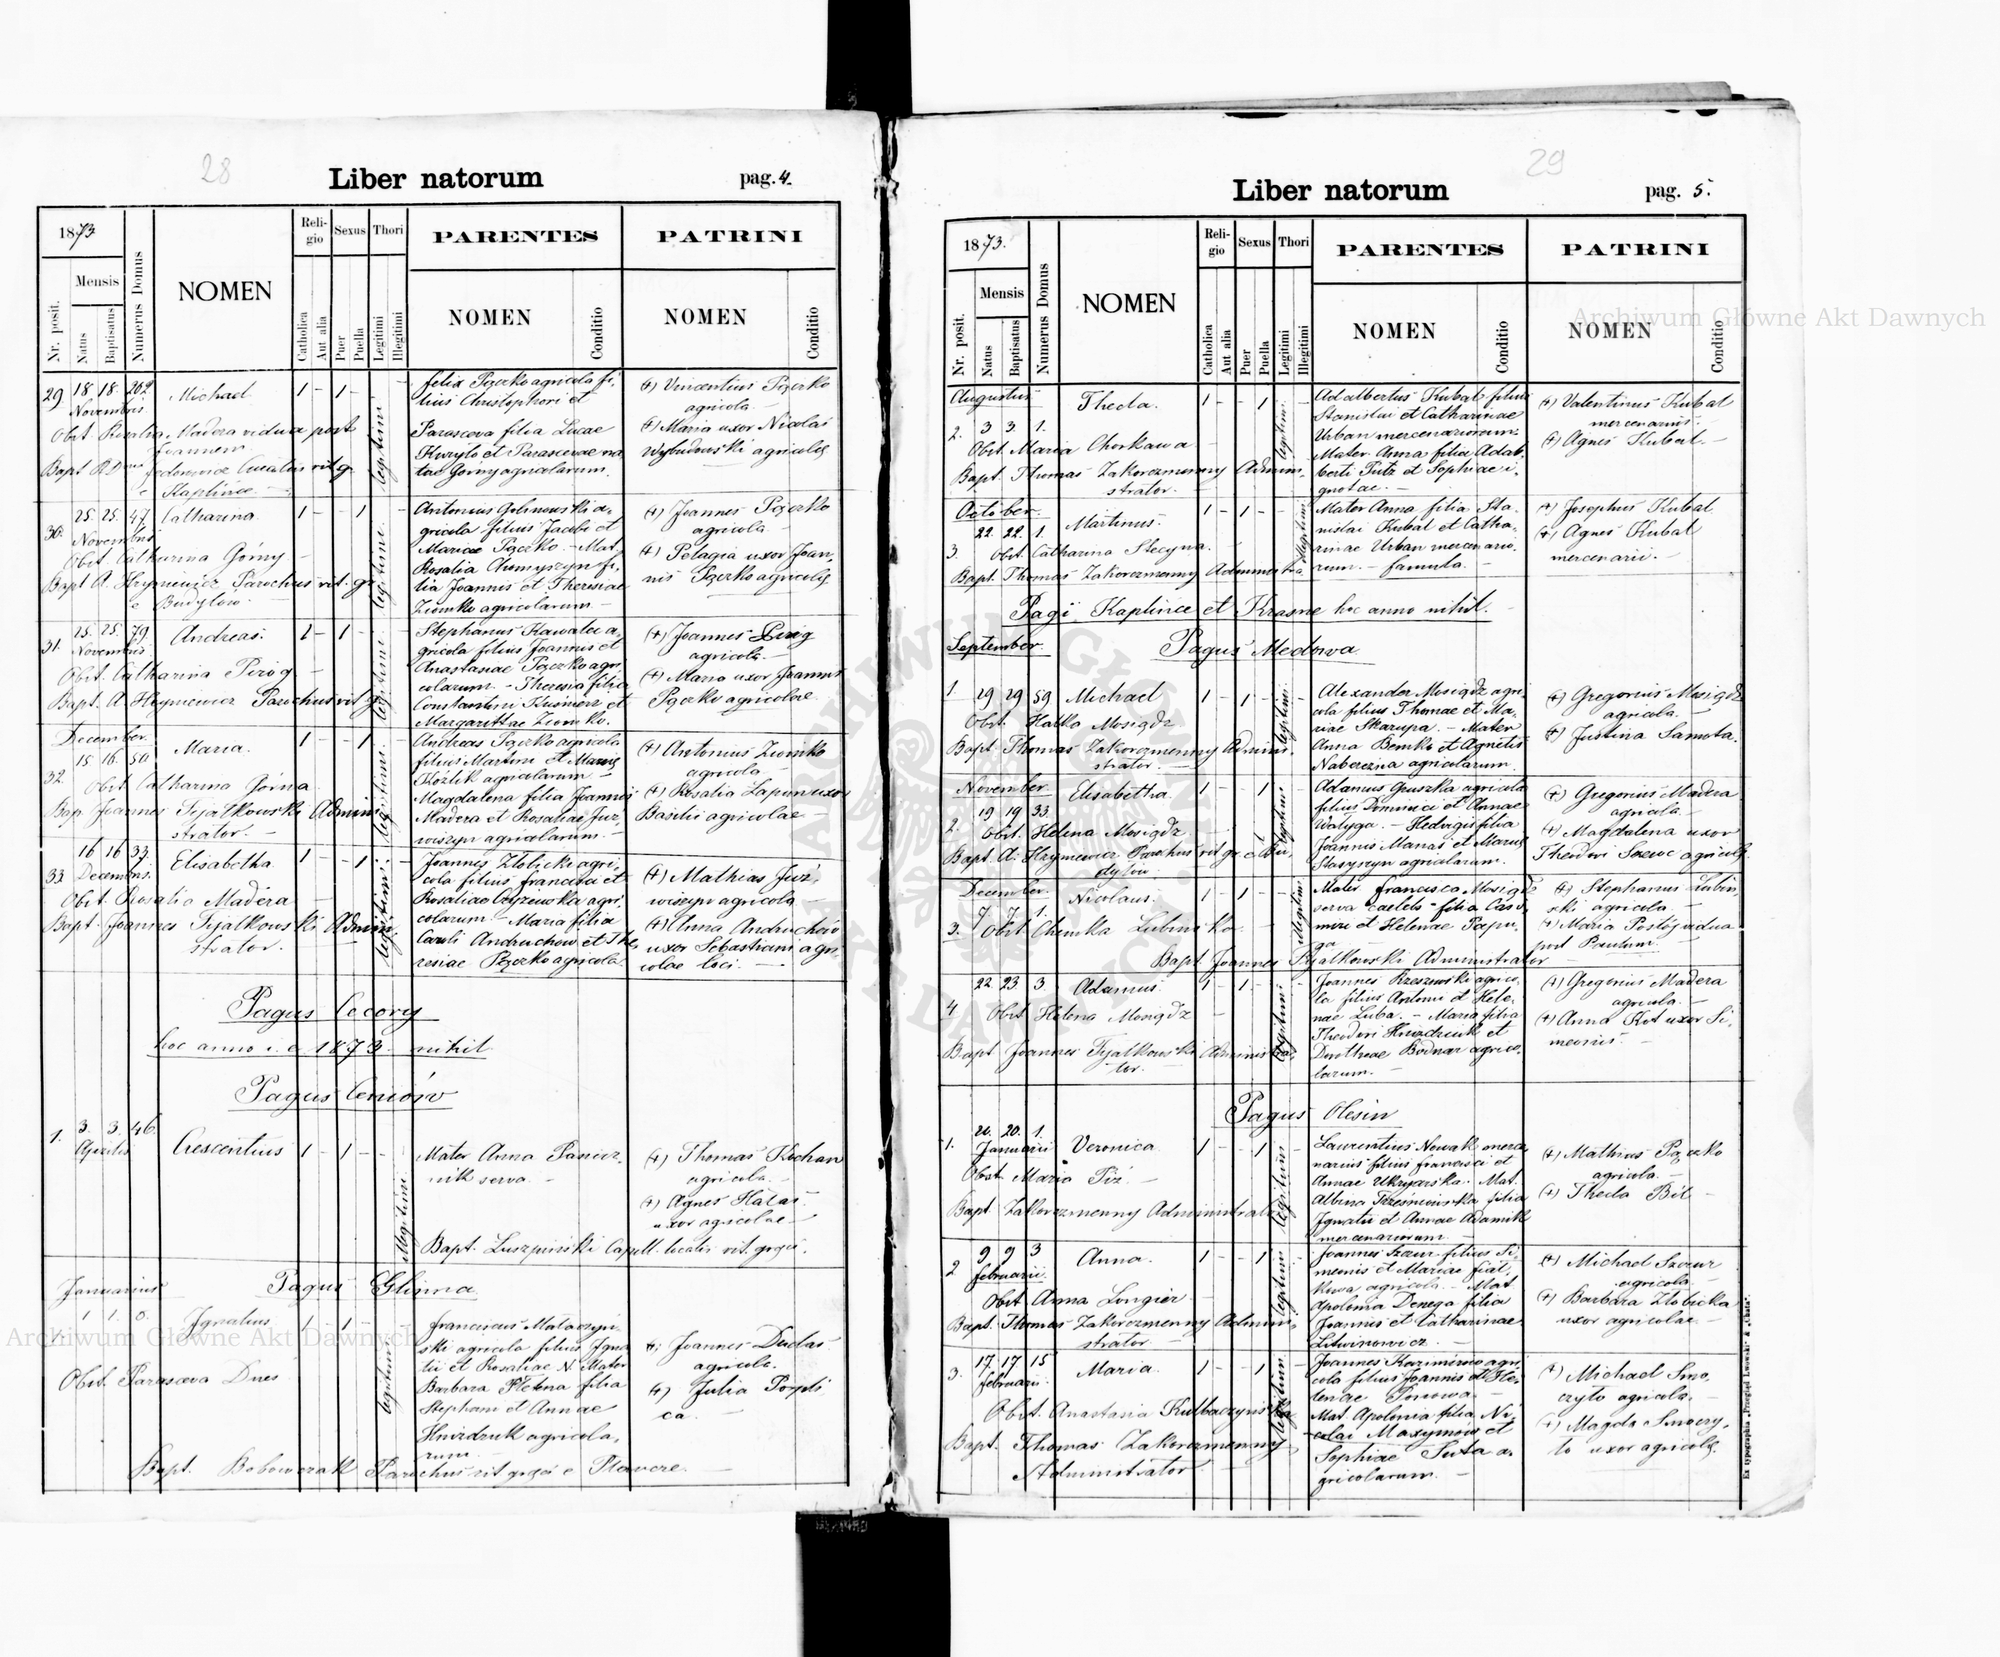 28
Liber natorum
pag. 4.
1873.
Nr. posit.
Mensis
Natus
Baptisatus
Numerus Domus
NOMEN
Religio
Catholica
Aut alia
Sexus
Puer
Puella
Thori
Legitimi
Illegitimi
PARENTES
NOMEN
Conditio
PATRINI
NOMEN
Conditio
29 18 18 202 Michael 1 - 1 -
Novembris
Obst. Rosalia Madera vidua post
Joannem
e Kaplince
legitimi
Felix Pączko agricola fi-
lius Christophori et
Parasceva filia Lucae
Kuryło et Parascevae na-
tae Górny agricolarum.
(+) Vincentius Pączko
agricola
(+) Maria uxor Nicolai
Wybudowski agricolae
30. 25. 25. 47. Catharina 1 - - 1
Novembris
Obst. Catharina Górny
Bapt. A. Hryniewicz Parochus rit. gr.
e Budyłow.
legitimi
Antonius Golinowski a-
gricola filius Jacobi et
Mariae Pączko. - Mat.
Rosalia Chomyszyn fi-
lia Joannis et Theresiae
Ziomko agricolarum
(+) Joannes Pączko
agricola
(+) Pelagia uxor Joan-
nis Pączko agricolae
31. 25. 25. 79 Andreas. 1 - 1 -
Novembris.
Obst. Catharina Piróg
Bapt. A. Hryniewicz Parochus rit. g.
legitimi
Stephanus Kawalec a-
gricola filius Joannis et
Anastasiae Pączko agri-
colarum - Theresia filia
Constantini Kusnierz et
Margarittae Ziomko.
(+) Joannes Piróg
agricola.
(+) Maria uxor Joannis
Pączko agricolae
December.
32. 15 16. 50 Maria. 1 - - 1
Obst. Catharina Górna
Bap. Joannes Fijałkowski Admini-
strator.
legitimi
Andreas Pączko agricola
filius Martini et Mariae
Koźlik agricolarum
Magdalena filia Joannis
Madera et Rosaliae Juz-
wiszyn agricolarum.
(+) Antonius Ziomko
agricola
(+) Rosalia Lapun uxor
Basilii agricolae
33. 16 16 37. Elisabetha 1 - - 1
Decembris.
Obst. Rosalia Madera
Bapt. Joannes Fijałkowski Admini-
strator.
legitimi
Joannes Złobicki agri-
cola filius Francisci et
Rosaliae agri-
colarum - Maria filia
Caroli Andruchow et The-
resiae Pączko agricola.
(+) Mathias Juz-
wiszyn agricola
(+) Anna Andruchów
uxor Sebastiani agri-
colae loci.
Pagus Cecory
hoc anno i. e 1873 nihil
Pagus Ceniów
1. 3. 3. 46. Crescentius 1 - 1 -
Aprilis
Illegitimi
Mater Anna Pasiecz-
nik serva.
(+) Thomas Kochan
agricola.
(+) Agnes Hałas
uxor agricolae
Bapt. Luszpiński Capell. localis rit. graeci.
Januarius
Pagus Glinna
1 1 0. Ignatius 1 - 1 -
Obst. Parasceva Dnes
legitimi
Franciscus Mataczyń-
ski agricola filius Igna-
tii et Rosaliae N. Mater
Barbara Pletena filia
Stephani et Annae
Hwizdzuk agricola-
rum
(+) Joannes Dudas
agricola.
(+) Julia Popli
ca.
Bapt. Bobowczak Parochus rit graeci e Plawcze.
29
Liber natorum
pag. 5.
1873.
Nr. posit.
Mensis
Natus
Baptisatus
Numerus Domus
NOMEN
Religio
Catholica
Aut alia
Sexus
Puer
Puella
Thori
Legitimi
Illegitimi
PARENTES
NOMEN
Conditio
PATRINI
NOMEN
Conditio
Augustus
2. 3 3 1. Thecla. 1 - - 1
Obst. Maria Chorkawa
Bapt. Thomas Zakorczmenny Admini-
strator.
legitimi
Adalbertus Kubal filius
Stanislai et Catharinae
Urban mercenariorum.
Mater Anna filia Adal-
berti Putz et Sophiae i-
gnotae.
(+) Valentinus Kubal
mercenarius.
(+) Agnes Kubal.
October.
3. 22. 22. 1. Martinus. 1 - 1 -
Obst. Catharina Stecyna.
Bapt. Thomas Zakorczmenny Administra
Illegitimi
Mater Anna filia Sta-
nislai Kubal et Catha-
rinae Urban mercenario-
rum. - famula.
(+) Josephus Kubal
(+) Agnes Kubal
mercenarii.
Pagi Kaplince et Krasne hoc anno nihil.
September.
Pagus Medowa
1. 29 29 59. Michael 1 - 1 -
Obst. Hatka Mosiądz
Bapt. Thomas Zakorczmenny Admini-
strator.
legitimi
Alexander Mosiądz agri-
cola filius Thomae et Ma-
riae Skarupa. - Mater
Anna Bemko et Agnetis
Naberezna agricolarum.
(+) Gregorius Mosiądz
agricola.
(+) Justina Samota.
November
2. 19 19 33. Elisabetha. 1 - - 1
Obst. Helena Mosiądz
Bapt. A. Hryniewicz Parochus rit gr e Bu-
dyłow.
legitimi
Adamus Gruszka agricola
filius Dominici et Annae
Wałyga. - Hedvigis filia
Joannis Manaś et Mariae
Stasyszyn agricolarum.
(+) Gregorius Madera
agricola.
(+) Magdalena uxor
Theodori Szewc agricolae.
December.
3. 7. 7. 1. Nicolaus. 1 - 1 -
Obst. Chemka Lubinska
Illegitimi
Mater Francisca Mosiądz
serva caelebs - filia Casi-
miri et Helenae Papu-
ga
(+) Stephanus Lubin-
ski agricola.
(+) Maria Postój vidua
post Paulum.
Bapt. Joannes Fijałkowski Administrator
4. 22 23 3. Adamus. 1 - 1 -
Obst. Helena Mosiądz
Bapt. Joannes Fijałkowski Administra-
tor.
legitimi
Joannes Rzeszowski agrico-
la filius Antoni et Hele-
nae Luba. - Maria filia
Theodori Hwizdzuk et
Dorotheae Bodnar agrico-
larum.
(+) Gregorius Madera
agricola.
(+) Anna Kot uxor Si-
meonis.
Pagus Olesin
1. 20. 20. 1. Veronica 1 - - 1
Januarii
Obst. Maria Piż.
Bapt. Zakorczmenny Administrator
legitimi
Laurentius Nowak merce-
narius filius Francisci et
Annae Ukryarska. Mat.
Albina Trześniowska filia
Ignatii et Annae Adamik
mercenariorum
(+) Mathias Pączko
agricola.
(+) Thecla Bil
2 9 9 3 Anna. 1 - - 1
Februarii.
Obst. Anna Longier
Bapt. Thomas Zakorczmenny Admini-
strator.
legitimi
Joannes Szczur filius Si-
meonis et Mariae Fiał-
kowa agricola. - Mat.
Apolonia Denega filia
Joannis et Catharinae
Litwinowicz.
(+) Michael Szczur
agricola
(+) Barbara Złobicka
uxor agricolae.
3. 17. 17 15 Maria. 1 - - 1
Februarii.
Obst. Anastasia Kulbaczyńska
Bapt. Thomas Zakorczmenny
Administrator
legitimi
Joannes Kazimirow agri-
cola filius Joannis et He-
lenae Ponowa.
Mat. Apolonia filia Ni-
colai Maxymow et
Sophiae Suta a-
gricolarum.
(+) Michael Smo-
czyło agricola.
(+) Magda Smoczy-
ło uxor agricolae.
Ex typographia „Przegląd Lwowski" & „Chata".
Archiwum Główne Akt Dawnych
Archiwum Główne Akt Dawnych
ARCHIWUM GŁÓWNE AKT DAWNYCH